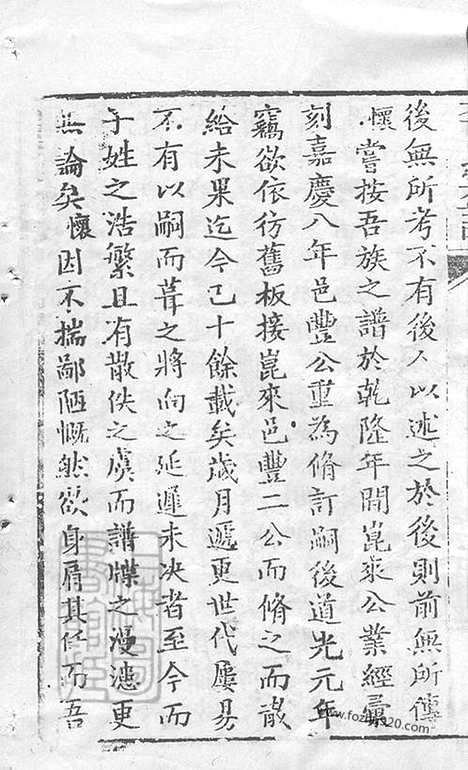 後無所考不有後人以述之於後則前無所傳
懷嘗按吾族之譜於乾隆年間崑來公業經募
刻嘉慶八年邑豐公重為脩訂嗣後道光元年
竊欲依彷舊板接崑來邑豐二公而脩之而敨
給未果迄今已十餘載矣歲月遞更世代屢易
不有以嗣而葺之將向之延遲未决者至今而
子姓之浩繁且有散佚之虞而譜牒之漫漶更
無論矣懷因不揣鄙陋慨然欲身肩其任而吾